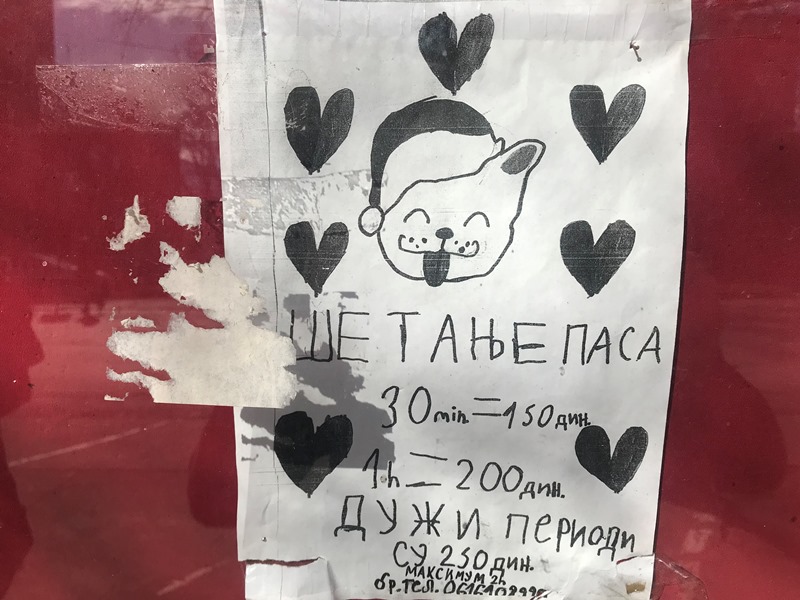 ШЕТАЊЕ ПАСА
30 min = 150 дин.
1h = 200 дин.
ДУЖИ ПЕРИОДИ
СУ 250 дин.
МАКСИМУМ 2h
бр. тел.